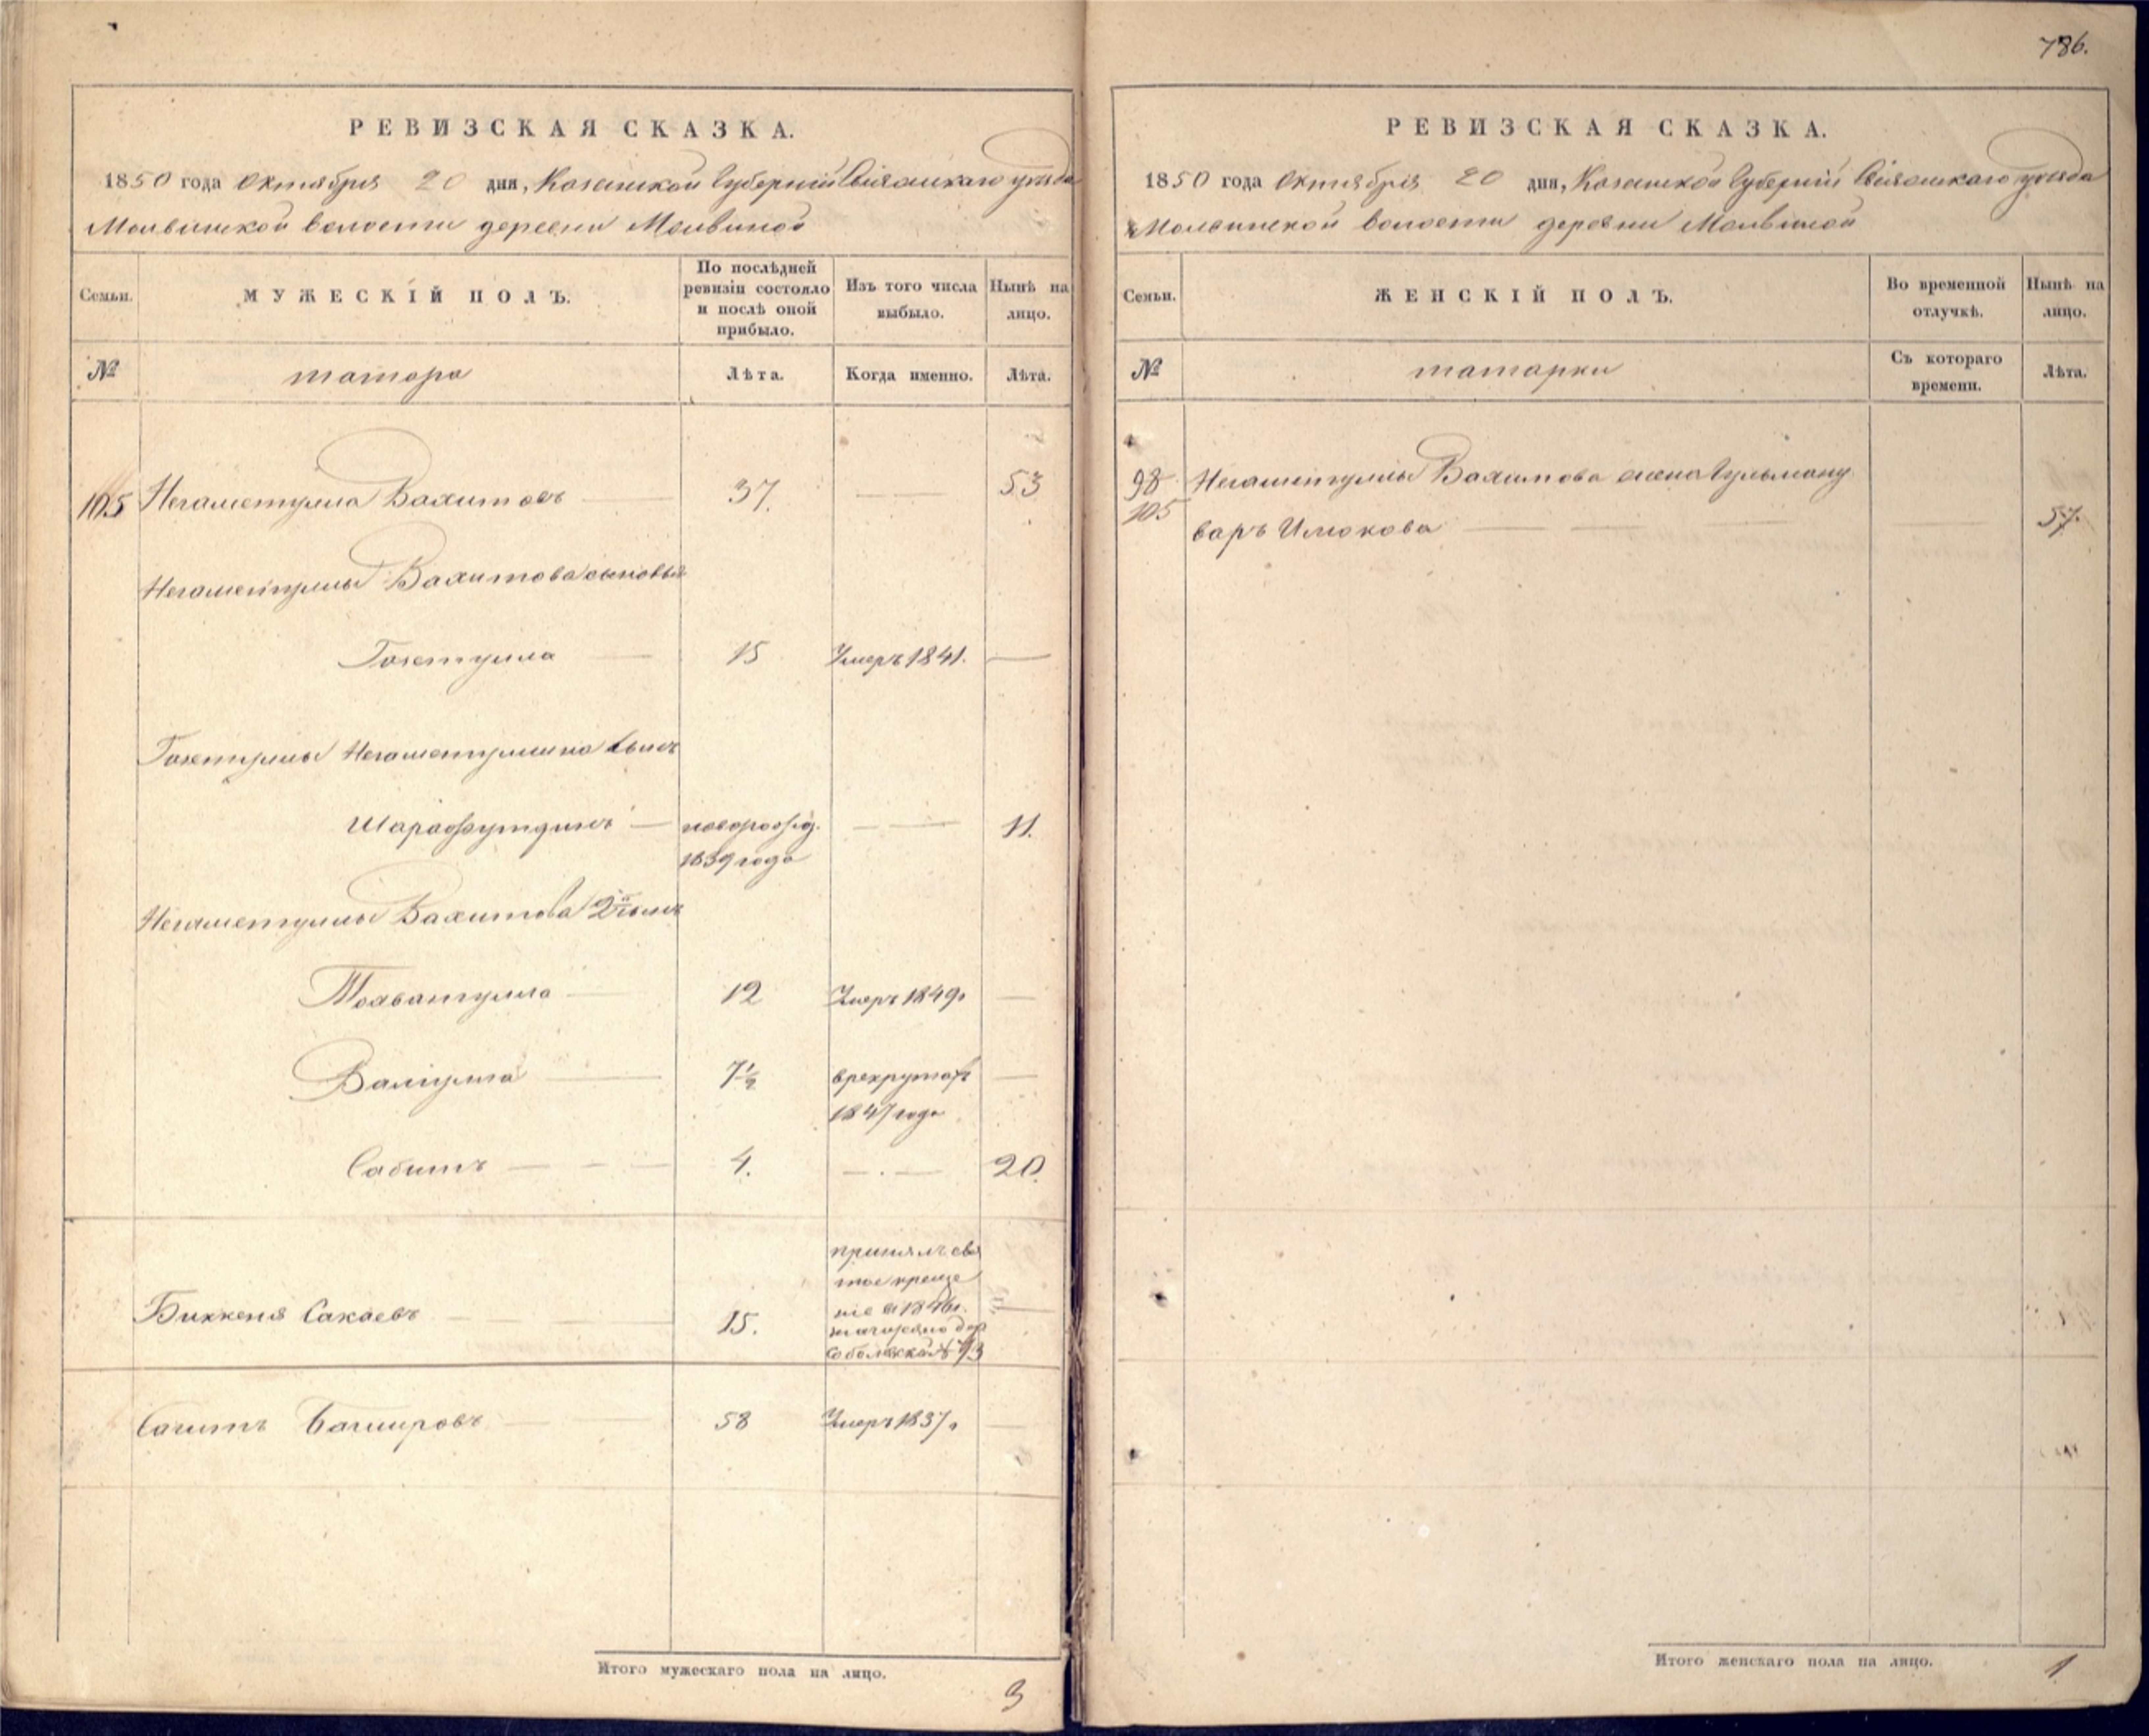 786.
РЕВИЗСКАЯ СКАЗКА.
1850 года Октября 20 дня, Казанской Губернии Свіяжскаго уѣзда
Молвинской волости деревни Молвиной
Семьи.
МУЖЕСКІЙ ПОЛЪ.
По послѣдней ревизіи состояло и послѣ оной прибыло.
Изъ того числа выбыло.
Нынѣ на лицо.
№
татара
Лѣта.
Когда именно.
Лѣта.
105 Негаметулла Вахитовъ 37. 53
Негаметуллы Вахитова сыновья
Гозетулла 15 Умеръ 1841.
Гозетуллы Негаметуллина сынъ
Шарафутдинъ новорожд. 11.
1839 года
Негаметуллы Вахитова 2й сынъ
Тохватулла 12 Умеръ 1849.
Валіулла 7½ в рекрутахъ
1847 года
Сабитъ 4. 20.
принялъ свя
тое креще
ніе в 1846г.
Биккеня Сакаевъ 15.
Сагитъ Багировъ 58 Умеръ 1837.
Итого мужескаго пола на лицо.
3
РЕВИЗСКАЯ СКАЗКА.
1850 года Октября 20 дня, Казанской Губерніи Свіяжскаго уѣзда
Молвинской волости деревни Молвиной
Семьи.
ЖЕНСКІЙ ПОЛЪ.
Во временной отлучкѣ.
Нынѣ на лицо.
№
татарки
Съ котораго времени.
Лѣта.
98 Негаметуллы Вахитова жена Гульману
105 варъ Илюкова 57.
Итого женскаго пола на лицо.
1